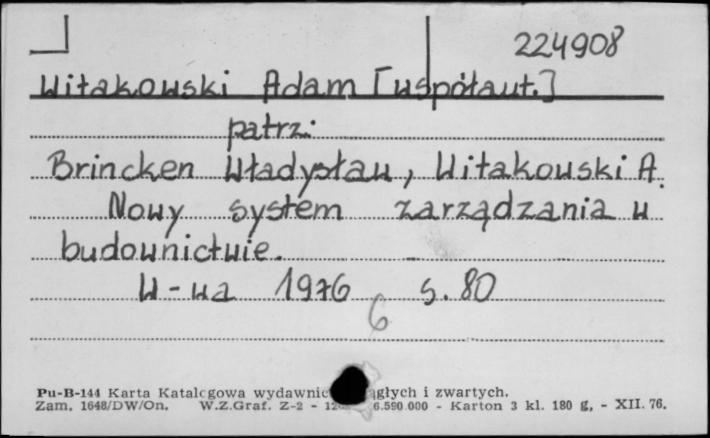 224908
Witakowski Adam [współaut.]
patrz:
Brincken Władysław, Witakowski A.
Nowy system zarządzania w
budownictwie.
W-wa 1976 s. 80
6
Pu-B-144 Karta Katalogowa wydawnic głych i zwartych.
Zam. 1648/DW/On. W.Z.Graf. Z-2 - 6.590.000 - Karton 3 kl. 180 g, - XII. 76.